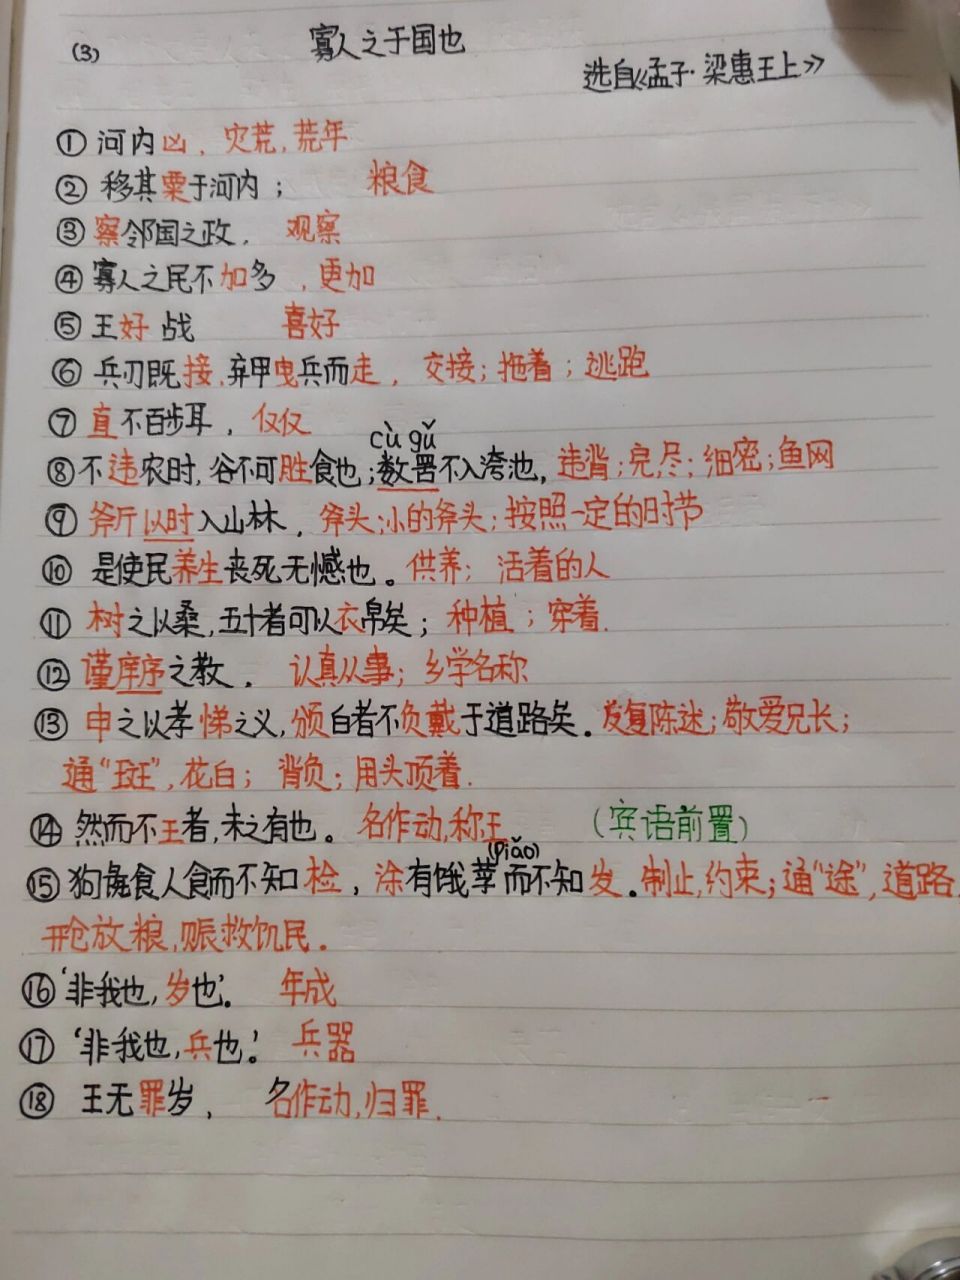 (3) 寡人之于国也
选自《孟子·梁惠王上》
① 河内凶，灾荒，荒年
② 移其粟于河内； 粮食
③ 察邻国之政， 观察
④ 寡人之民不加多，更加
⑤ 王好战 喜好
⑥ 兵刃既接，弃甲曳兵而走， 交接；拖着；逃跑
⑦ 直不百步耳， 仅仅
cù gǔ
⑧ 不违农时，谷不可胜食也；数罟不入洿池，违背；完，尽；细密；鱼网
⑨ 斧斤以时入山林，斧头；小的斧头；按照一定的时节
⑩ 是使民养生丧死无憾也。供养； 活着的人
⑪ 树之以桑，五十者可以衣帛矣； 种植；穿着.
⑫ 谨庠序之教， 认真从事；乡学名称
⑬ 申之以孝悌之义，颁白者不负戴于道路矣。反复陈述；敬爱兄长；
通“斑”，花白； 背负；用头顶着.
⑭ 然而不王者，未之有也。 名作动，称王 （宾语前置）
(piǎo)
⑮ 狗彘食人食而不知检，涂有饿莩而不知发。制止，约束；通“途”，道路，
开仓放粮，赈救饥民。
⑯ ‘非我也，岁也’。 年成
⑰ ‘非我也，兵也.’ 兵器
⑱ 王无罪岁， 名作动，归罪.